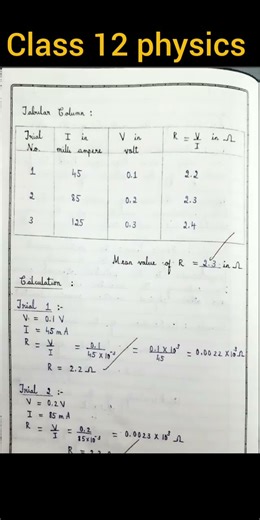 Class 12 physics
Tabular Column :
Trial No. I in milli ampere V in volt R = V/I in Ω
1 45 0.1 2.2
2 85 0.2 2.3
3 125 0.3 2.4
Mean value of R = 2.3 in Ω
Calculation :
Trial 1 :-
V = 0.1 V
I = 45 mA
R = V/I = 0.1/45 x 10⁻³ = 0.1 x 10³/45 = 0.0022 x 10³ Ω
R = 2.2 Ω
Trial 2 :-
V = 0.2 V
I = 85 mA
R = V/I = 0.2/85 x 10⁻³ = 0.0023 x 10³ Ω